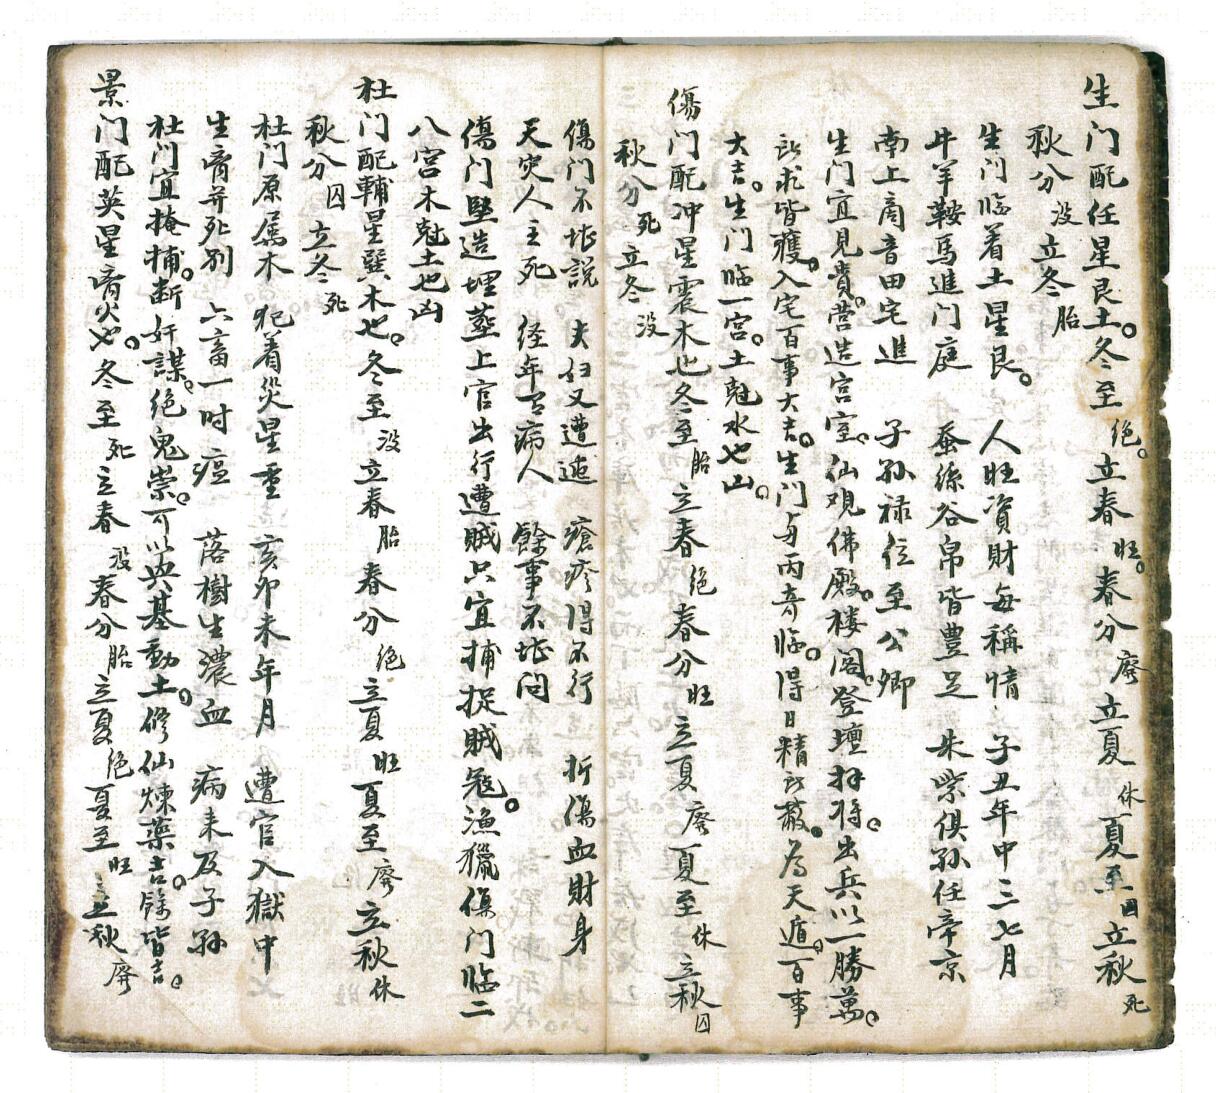 生门配任星艮土。冬至絶。立春旺。春分廢立夏休夏至囚立秋死
秋分没立冬胎
生门临着土星艮。人旺資財每稱情子丑年中三七月
牛羊鞍馬進门庭 蚕絲谷帛皆豊足 朱紫俱孙任帝京
南上商音田宅進 子孙禄位至公卿
生门宜見貴。营造宫室。仙观佛殿。楼阁。登壇拜将。出兵以一勝萬。
所求皆獲。入宅百事大吉。生门与丙奇临。得日精所蔽。為天遁。百事
大吉。生门临一宫。土尅水也凶。
傷门配冲星震木也冬至胎立春絶春分旺立夏廢夏至休立秋囚
秋分死立冬没
傷门不堪説 夫妇又遭迍 瘡疼得不行 折傷血財身
天灾人主死 经年有病人 餘事不堪问
傷门竪造埋葬上官出行遭賊只宜捕捉賊冠。漁獵傷门临二
八宫木尅土也凶
杜门配輔星巽木也。冬至没立春胎春分絶立夏旺夏至廢立秋休
秋分囚立冬死
杜门原属木 犯着災星重 亥卯未年月 遭官入獄中
生离并死别 六畜一时瘟 落樹生濃血 病来及子孙
杜门宜掩捕。断奸謀。绝鬼祟。可以填基動土。修仙煉藥吉。餘皆吉。
景门配英星离火也。冬至死立春没春分胎立夏绝夏至旺立秋廢